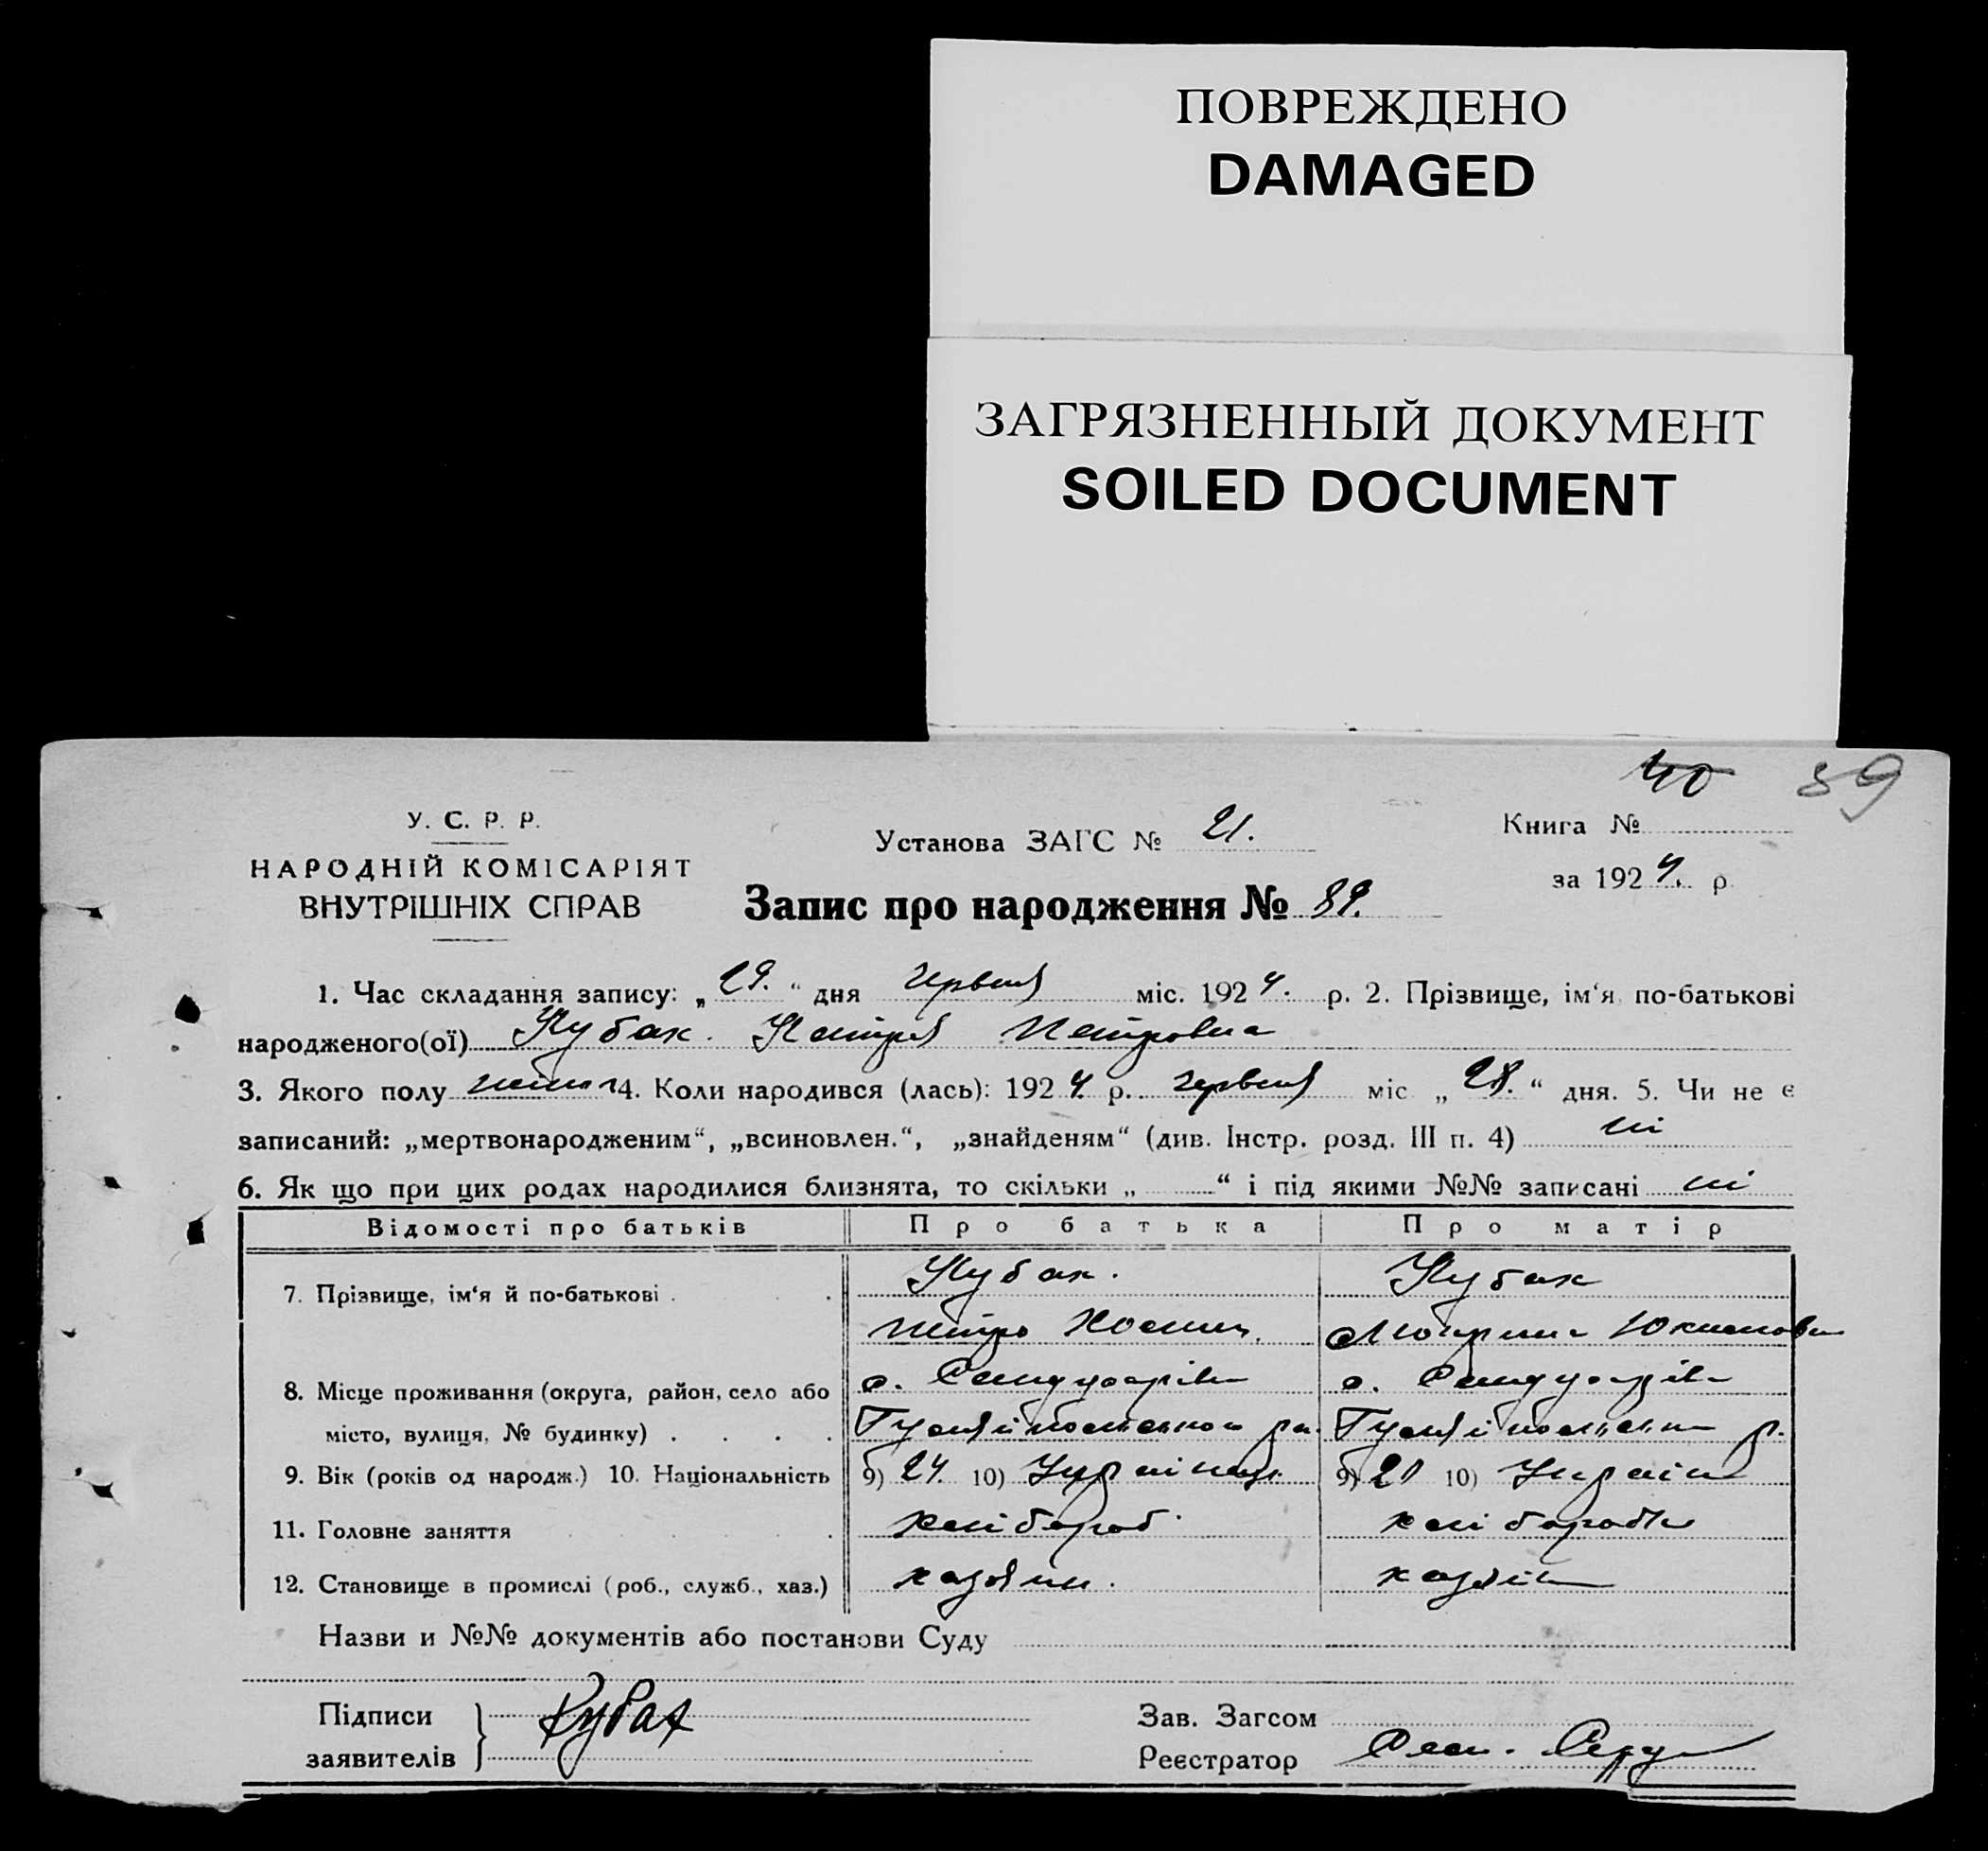 ПОВРЕЖДЕНО
DAMAGED
ЗАГРЯЗНЕННЫЙ ДОКУМЕНТ
SOILED DOCUMENT
40 89
У. С. Р. Р.
НАРОДНІЙ КОМІСАРІЯТ
ВНУТРІШНІХ СПРАВ
Установа ЗАГС № 21.
Книга №
за 1924. р
Запис про народження № 89.
1. Час складання запису: „29.“ дня червня міс. 1924. р. 2. Прізвище, ім‘я по-батькові
народженого(ої) Кубах. Катря Петровна
3. Якого полу жіноч 4. Коли народився (лась): 1924 р. червня міс „28.“ дня. 5. Чи не є
записаний: „мертвонародженим“, „всиновлен.“, „знайденям“ (див. Інстр. розд. III п. 4) ні
6. Як що при цих родах народилися близнята, то скільки „ “ і під якими №№ записані ні
Відомості про батьків Про батька Про матір
7. Прізвище, ім‘я й по-батькові . Кубах. Кубах
Петро
8. Місце проживання (округа, район, село або с. с.
місто, вулиця, № будинку) . . . .
9. Вік (років од народж.) 10. Національність 9) 24 10) Українець. 9) 21 10) Україн
11. Головне заняття . хлібороб. хлібороб
12. Становище в промислі (роб., служб., хаз.) хазяин. хазяін
Назви и №№ документів або постанови Суду
Підписи
заявителів } Кубах
Зав. Загсом
Реєстратор